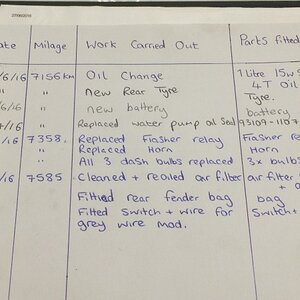 27/06/2015
ate Milage Work Carried Out Parts fitted
/6/16 7156km Oil Change 1 litre 15w5
" New Rear Tyre 4T Oil
Tyre.
6/16 " new battery battery
7/16 " Replaced water pump oil Seal 93109-1107
/16 7358. Replaced Flasher relay Flasher re
" Replaced Horn Horn
" All 3 dash bulbs replaced 3x bulbs
/16 7585 Cleaned + reoiled air filter air filter
+ o
Fitted rear fender bag bag
Fitted Switch + wire for Switch +
grey wire mod.